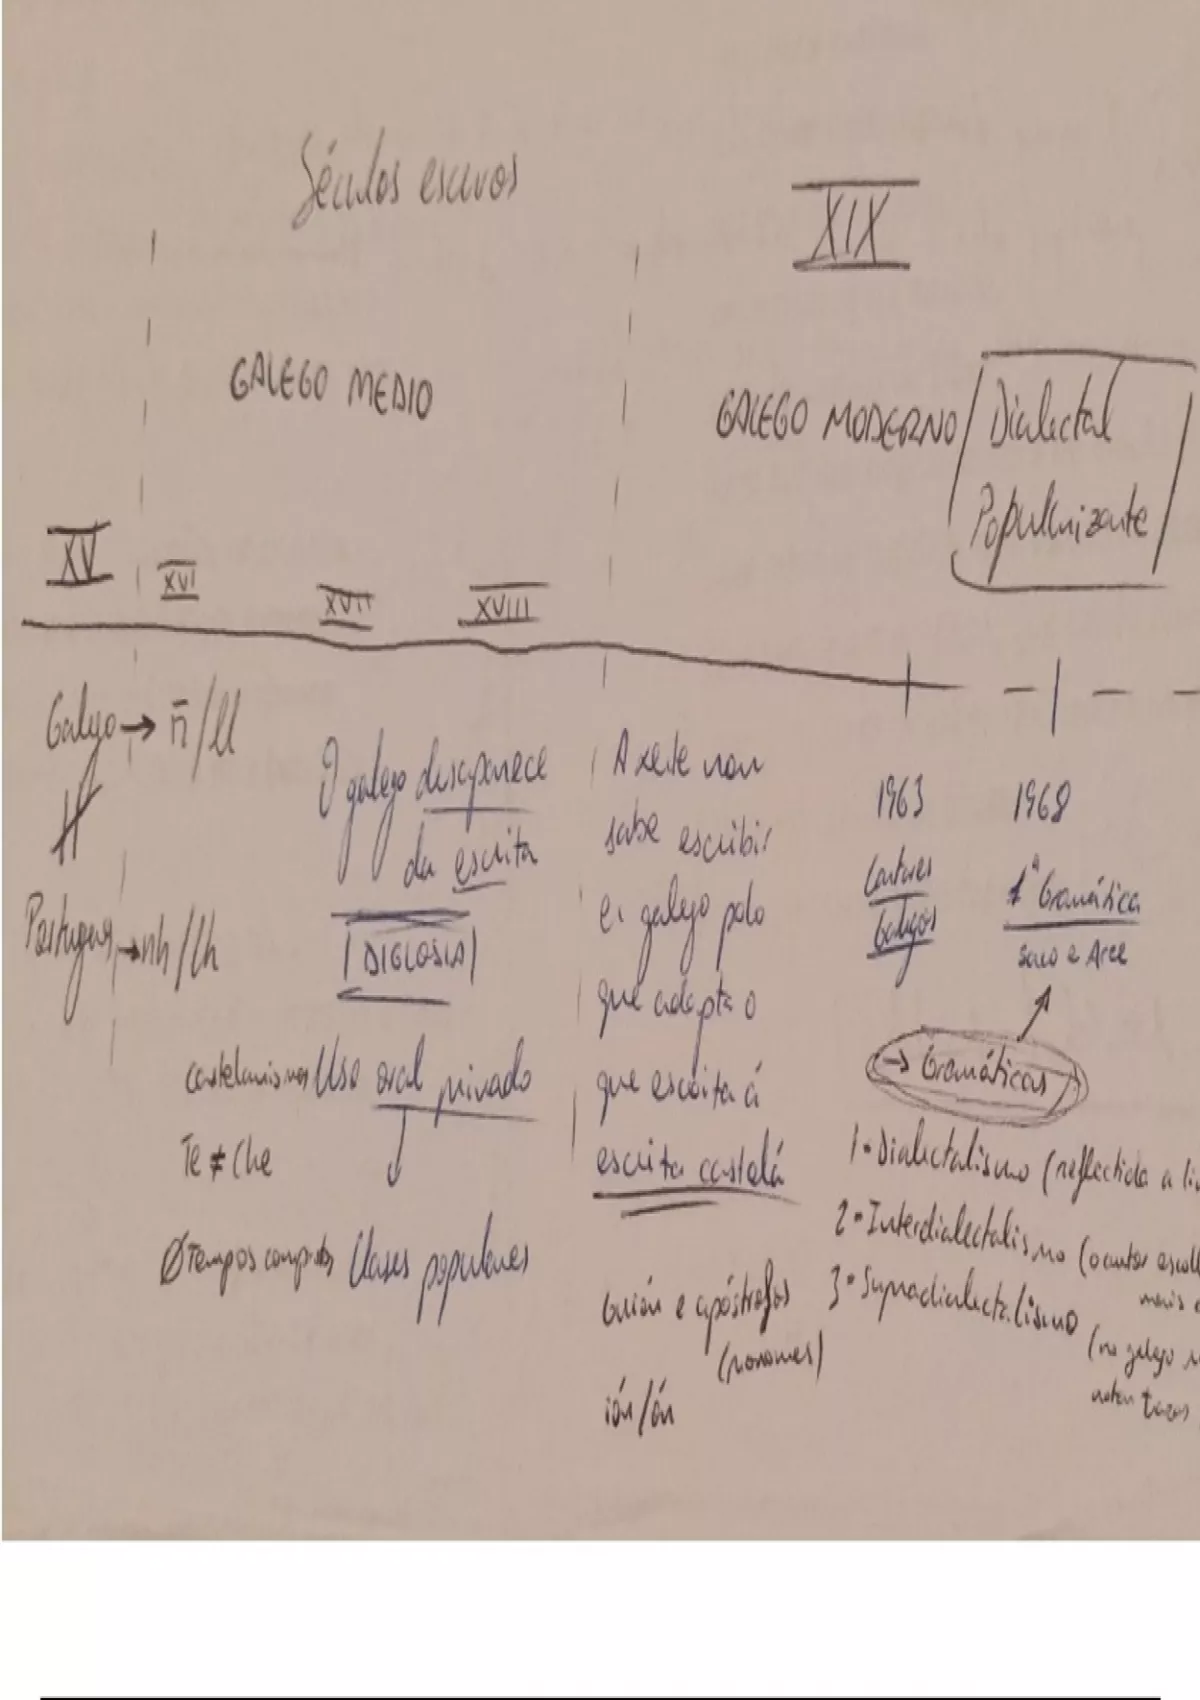 Séculos escuros
XIX
GALEGO MEDIO
GALEGO MODERNO
Dialectal
Popularizante
XV
XVI
XVII
XVIII
Galego → ñ/ll
Portugues → nh/lh
castelanismos
Te ≠ Che
Ø Tempos compostos
O galego desaparece
da escrita
DIGLOSIA
Uso oral privado
Clases populares
A xente non
sabe escribir
galego polo
que adapta o
que escoita á
escrita castelá
Guión e apóstrofos
(pronomes)
ión/ón
1963
Cantares
Galegos
1968
1ª Gramática
Saco e Arce
→ Gramáticas
1- Dialectalismo (reflectida a
2- Interdialectalismo (o autor
mais
3- Supradialectalismo
(no galego